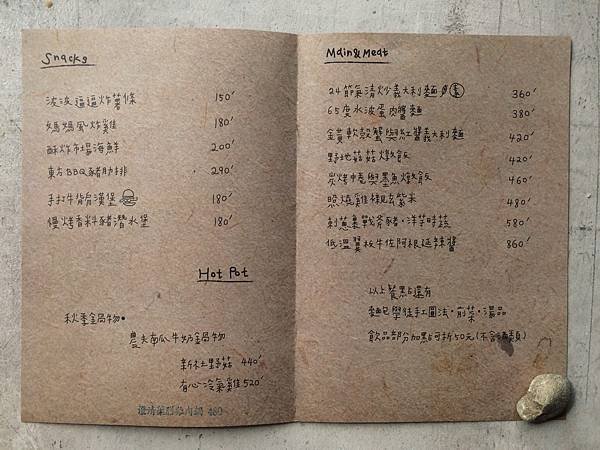 Snacks
波波逼逼炸薯條 150
媽媽風炸雞 180
酥炸市場海鮮 200
東方BBQ豬肋排 290
手打牛背肯漢堡 180
慢烤香料豬潛水堡 180
Hot Pot
秋季鍋物
農夫南瓜牛奶鍋物
新社野菇 440
有心冷氣雞 520
Main&Meat
24節氣清炒義大利麵 素 360
65度水波蛋肉醬麵 380
金黃軟殼蟹與紅醬義大利麵 420
野地菇菇燉飯 420
炭烤中卷與墨魚燉飯 460
照燒雞 紫米 480
剝蔥裹戰斧豬·洋芋時蔬 580
低溫翼板牛佐阿根廷辣醬 860
以上餐點還有
麵包學徒手工圓法·前菜·湯品
飲品部份加點可折50元(不含酒類)